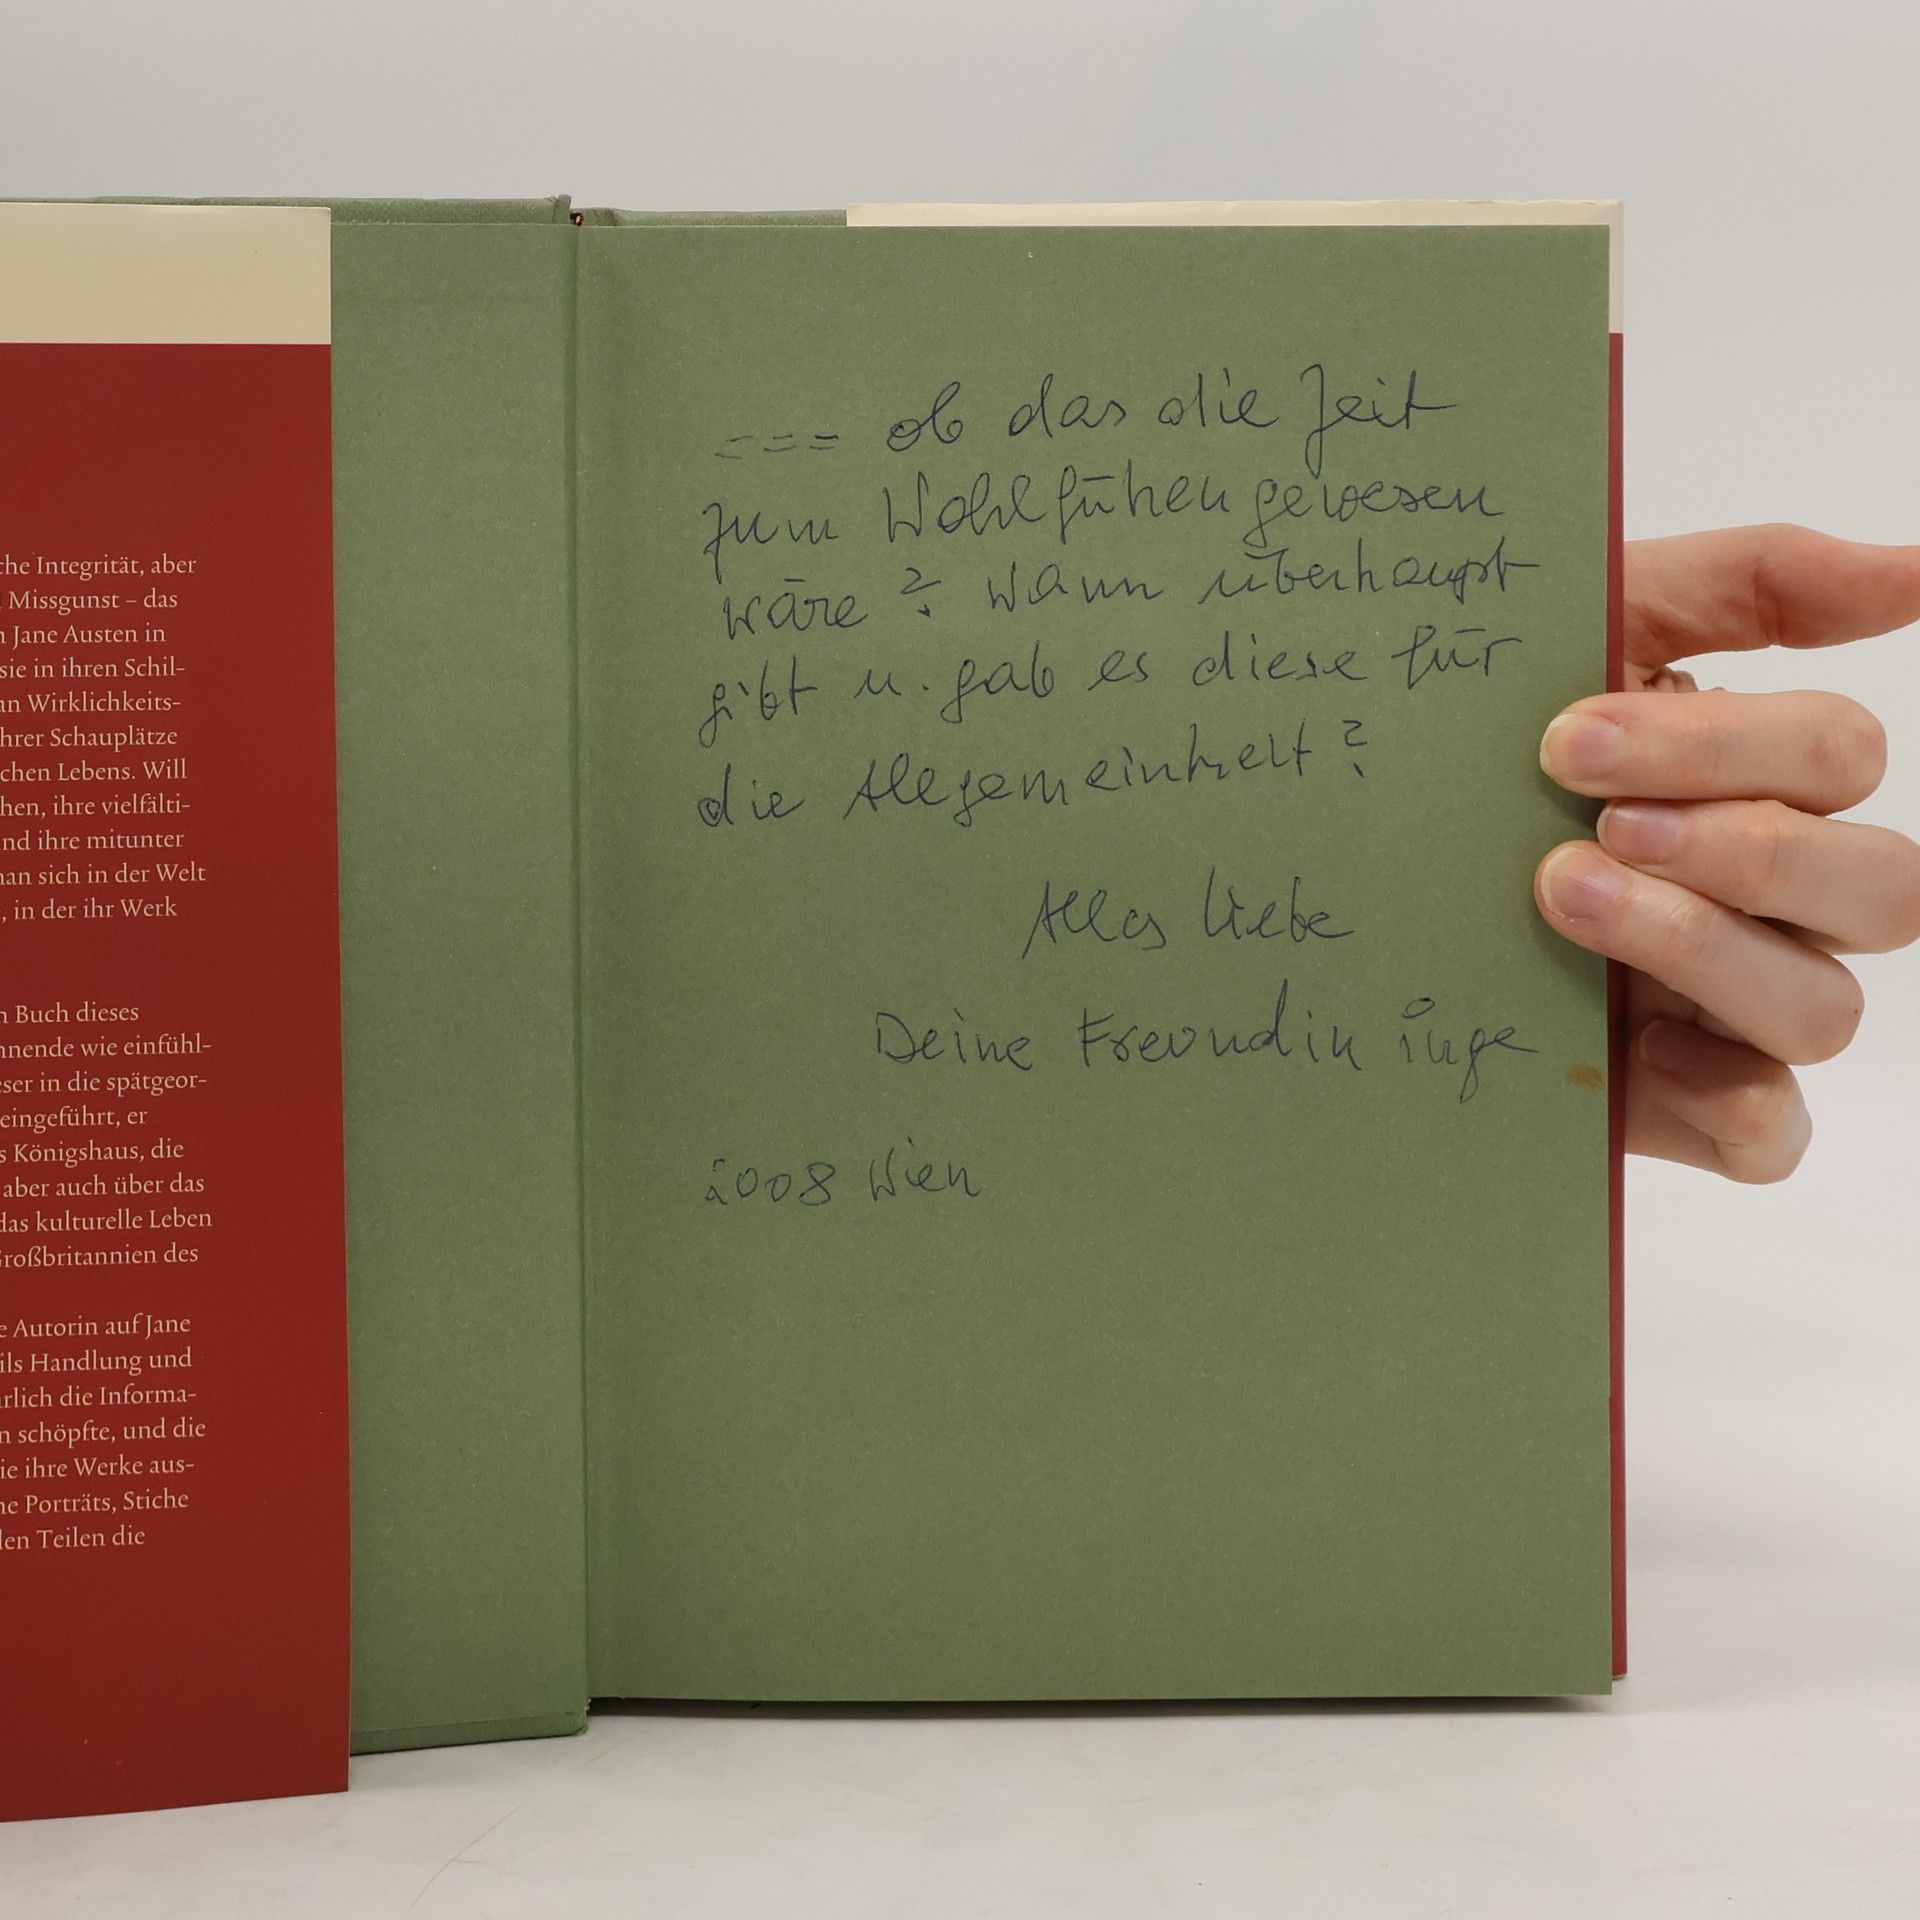 che Integrität, aber
Missgunst – das
n Jane Austen in
sie in ihren Schil-
an Wirklichkeits-
hrer Schauplätze
chen Lebens. Will
hen, ihre vielfälti-
nd ihre mitunter
nan sich in der Welt
, in der ihr Werk
n Buch dieses
nnende wie einfühl-
eser in die spätgeor-
eingeführt, er
s Königshaus, die
aber auch über das
das kulturelle Leben
Großbritannien des
e Autorin auf Jane
ils Handlung und
rlich die Informa-
n schöpfte, und die
ie ihre Werke aus-
ne Porträts, Stiche
den Teilen die
=== ob das die Zeit
zum Wohlfühlen gewesen
wäre? Wann überhaupt
gibt u. gab es diese für
die Allgemeinheit?
Alles Liebe
Deine Freundin Inge
2008 Wien